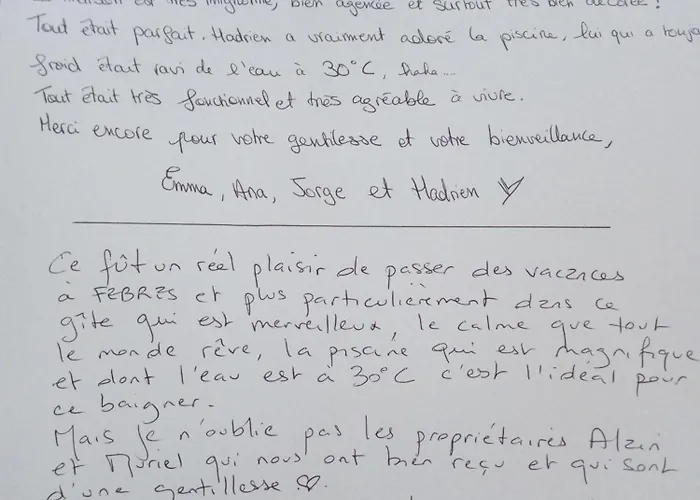 est très mignonne, bien agencée et surtout très bien décorée !
Tout était parfait. Hadrien a vraiment adoré la piscine, lui qui a toujo
froid était ravi de l'eau à 30°C, haha...
Tout était très fonctionnel et très agréable à vivre.
Merci encore pour votre gentilesse et votre bienveillance,
Emma, Ana, Jorge et Hadrien
Ce fût un réel plaisir de passer des vacances
à FEBRES et plus particulièrement dans ce
gîte qui est merveilleux, le calme que tout
le monde rêve, la piscine qui est magnifique
et dont l'eau est à 30°C c'est l'idéal pour
ce baigner.
Mais je n'oublie pas les propriétaires Alain
et Muriel qui nous ont bien reçu et qui sont
d'une gentillesse ♡.